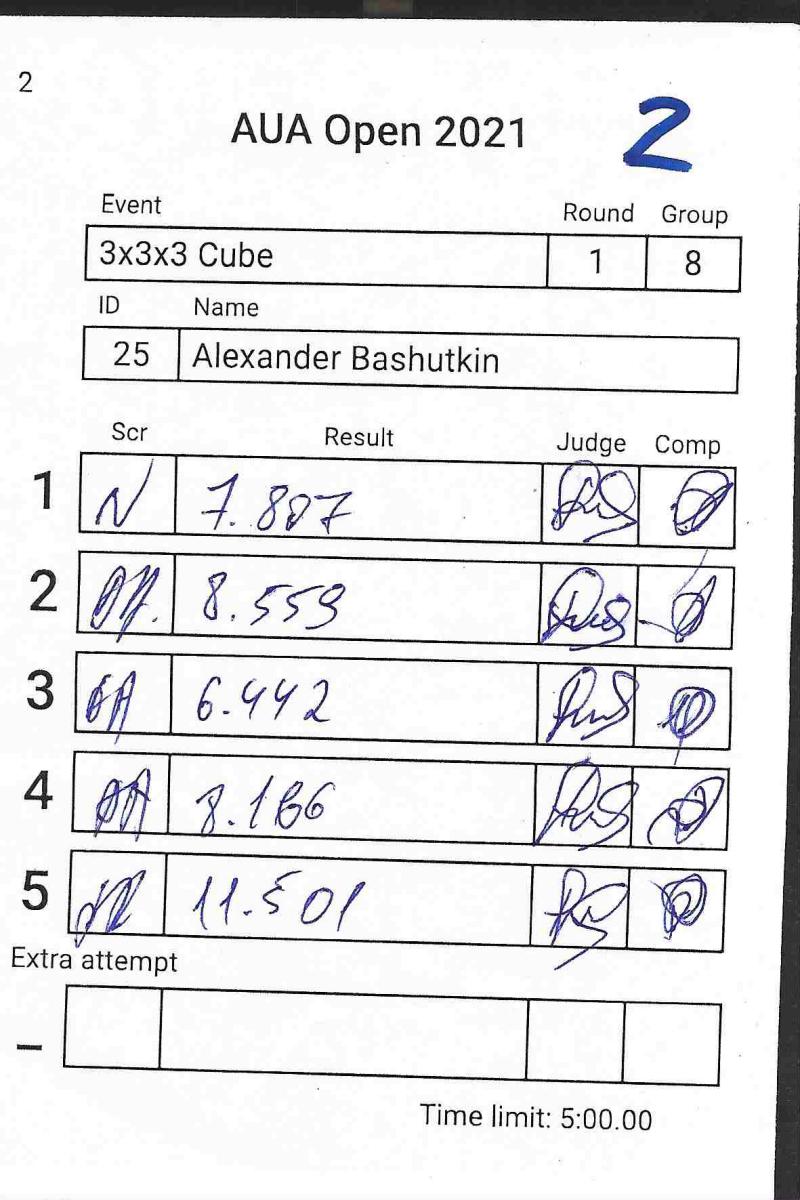 2
AUA Open 2021
2
Event Round Group
3x3x3 Cube 1 8
ID Name
25 Alexander Bashutkin
Scr Result Judge Comp
1 7.807
2 8.559
3 6.442
4 8.166
5 11.501
Extra attempt
–
Time limit: 5:00.00